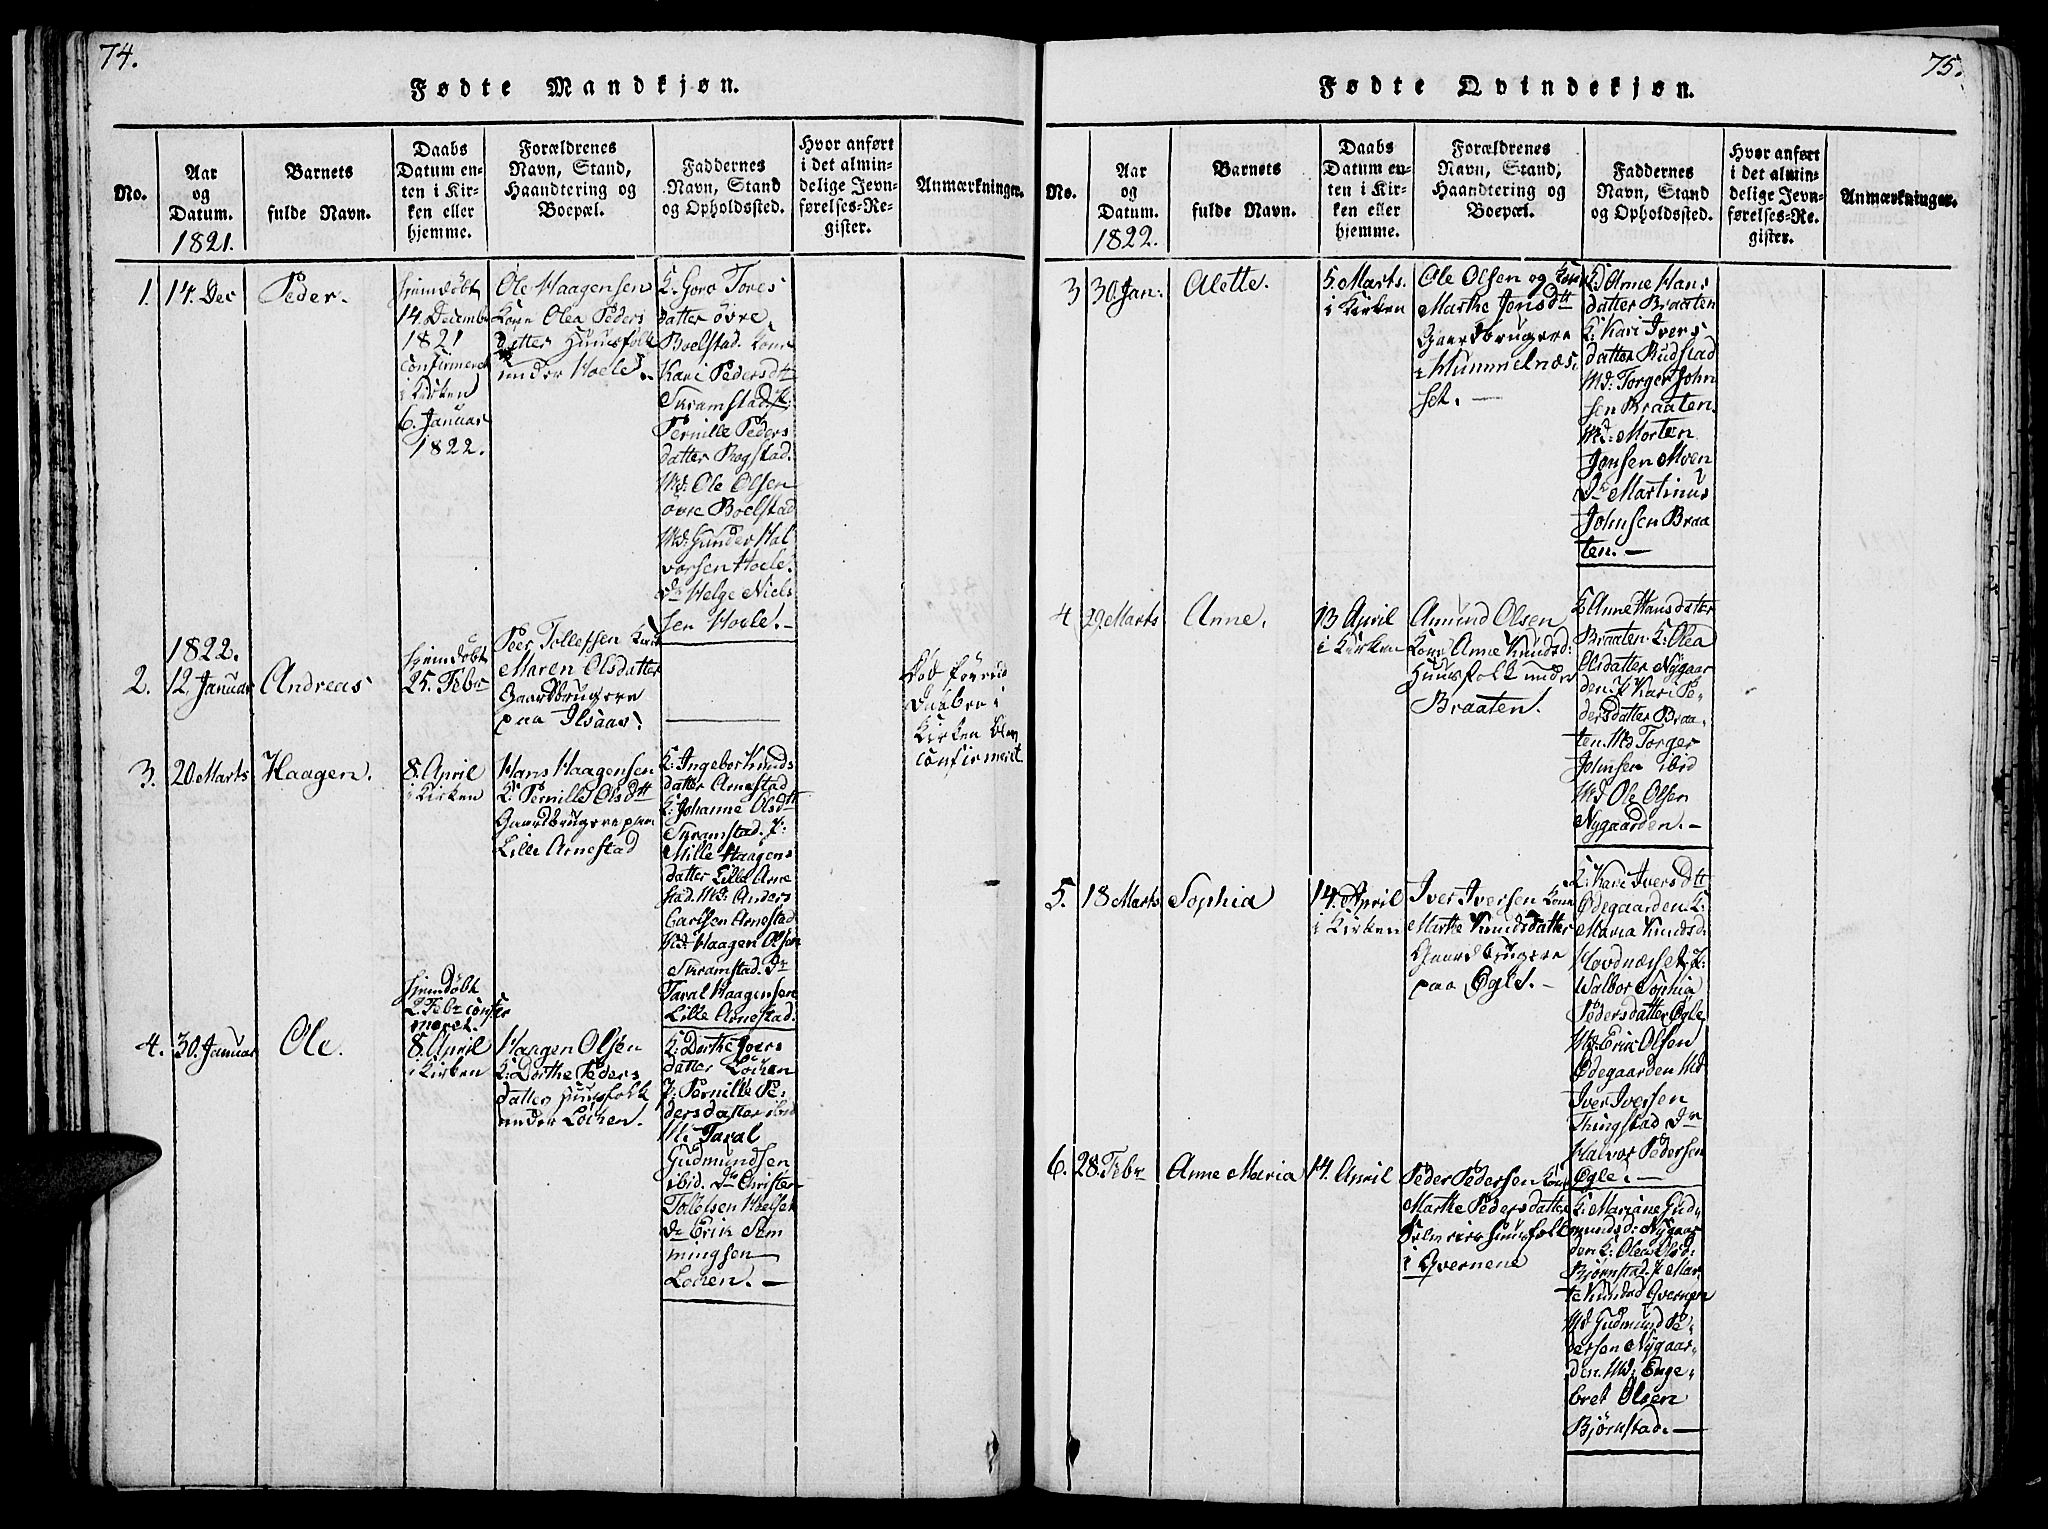 74.
Fødte Mandkjøn.
No.
Aar
og
Datum.
1821.
Barnets
fulde Navn.
Daabs
Datum en-
ten i Kir-
ken eller
hjemme.
Forældrenes
Navn, Stand,
Haandtering og
Boepæl.
Faddernes
Navn, Stand
og Opholdssted.
Hvor anført
i det almin-
delige Jevn-
førelses-Re-
gister.
Anmærkninger.
1.
14. Dec
Peder.
hjemdøbt
14. Decembr
1821
confirmeret
i Kirken
6. Januar
1822.
Ole Haagensen
Kone Olea Peders
datter Huusfolk
under Hoele.
K. Goro Tores
datter øvre
Boelstad. Kone
Kari Pedersdtt
Skramstad. P:
Pernille Peders
datter Rogstad.
Md: Ole Olsen
øvre Boelstad
Md: Gunder Hal
vorsen Hoele.
Dr Helge Niels
sen Hoele. —
1822.
2.
12. Januar
Andreas
hjemdøbt
25. Febr
Peer Tollefsen Kone
Maren Olsdatter
Gaardbrugere
paa Ilsaas.
—
Død førend
Daaben i
Kirken blev
confirmeret
3.
20. Marts
Haagen.
8. April
i Kirken
Hans Haagensen
K: Pernille Olsdtt
Gaardbrugere paa
Lille Arnestad
K: Ingebor Knuds
datter Arnestad
K: Johanne Olsdtt
Skramstad. P:
Mille Haagens
datter Lille Arne
stad. Md: Anders
Carlsen Arnestad
Md: Haagen Olsen
Skramstad. Dr
Taral Haagensen
Lille Arnestad.
4.
30. Januar
Ole.
hjemdøbt
2. Febr confir
meret.
8. April
i Kirken
Haagen Olsen
K: Dorthe Peders
datter Huusfolk
under Lochen.
K: Dorthe Ivers
datter Lochen
P: Pernille Pe-
dersdatter ibid
M: Taral
Gudmundsen
ibid. Dr Christen
Tollefsen Hoelset
Dr Erik Sem
mingsen
Lochen. —
75.
Fødte Qvindekjøn.
No.
Aar
og
Datum.
1822.
Barnets
fulde Navn.
Daabs
Datum en-
ten i Kir-
ken eller
hjemme.
Forældrenes
Navn, Stand,
Haandtering og
Boepæl.
Faddernes
Navn, Stand
og Opholdssted.
Hvor anført
i det almin-
delige Jevn-
førelses-Re-
gister.
Anmærkninger.
3
30. Jan:
Alette.
5. Marts.
i Kirken
Ole Olsen og Kone
Marthe Jensdtt
Gaardbrugere
i Hummelnæs,
set. —
K: Anne Hans
datter Braaten
K: Kari Ivers
datter Rudstad
Md: Torger John
sen Braaten.
Md: Morten
Jonsen Moen
Dr Martinus
Johnsen Braa
ten. —
4
29. Marts
Anne.
13 April
i Kirken
Amund Olsen
Kone Anne Knudsd:
Huusfolk under
Braaten.
K: Anne Hansdatter
Braaten. K: Olea
Olsdatter Nygaar
den. P: Kari Pe-
dersdatter Braa-
ten. Md Torger
Johnsen ibid
Md Ole Olsen
Nygaarden. —
5.
18 Marts
Sophia
14. April
i Kirken
Iver Iversen Kone
Marthe Knudsdatter
Gaardbrugere
paa Egle. —
K: Kari Iversdtt
Ødegaarden. K:
Maria Knudsd.
Hovdnæsset. P:
Walbor Sophia
Pedersdatter Egle
Md: Erik Olsen
Ødegaarden Md.
Iver Iversen
Thingstad Dr
Halvor Pedersen
Egle. —
6.
28. Febr
Anne Maria
14. April
Peder Pedersen Kone
Marthe Pedersdatter
Huusfolk
i Qvernene
K: Mariane Gud-
mundsd: Nygaar
den K: Olea Olsd:
Bjørnstad. P. Mar-
te Knudsd Qvernene
Md Gudmund Pe-
dersen Nygaar-
den. Md: Enge-
bret Olsen
Bjørnstad. —